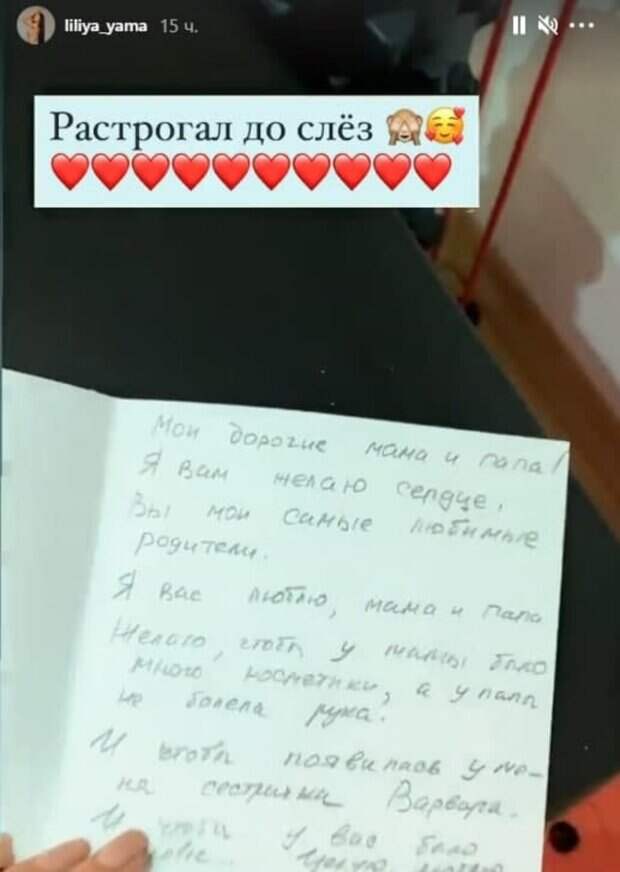 liliya_yama 15 ч.
Растрогал до слёз 🙈🥰
❤️❤️❤️❤️❤️❤️❤️❤️❤️❤️
Мои дорогие мама и папа!
Я вам желаю сердце.
Вы мои самые любимые
родители.
Я вас люблю, мама и папа
Желаю, чтобы у мамы было
много косметики, а у папы
не болела рука.
И чтобы появилась у ме-
ня сестричка Варвара.
И чтобы у вас было